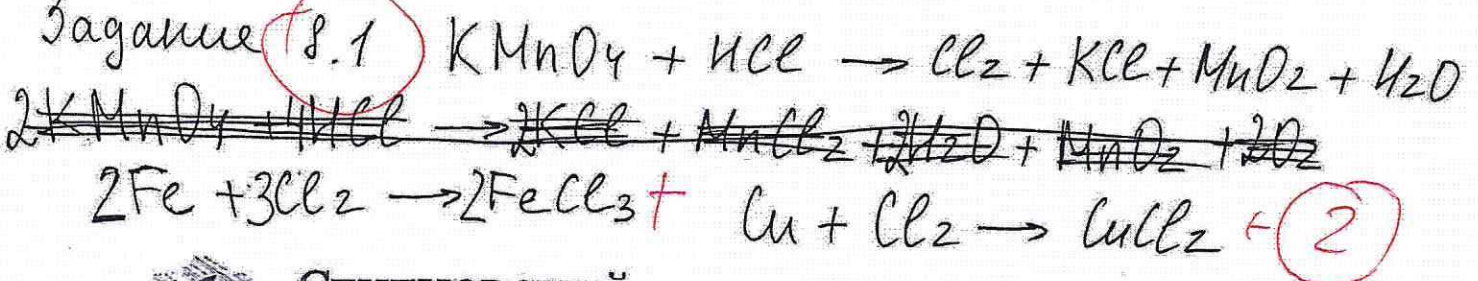 Задание 8.1 KMnO4 + HCl → Cl2 + KCl + MnO2 + H2O
2KMnO4 + 4HCl → 2KCl + MnCl2 + 2H2O + MnO2 + 2O2
2Fe + 3Cl2 → 2FeCl3 + Cu + Cl2 → CuCl2 + 2